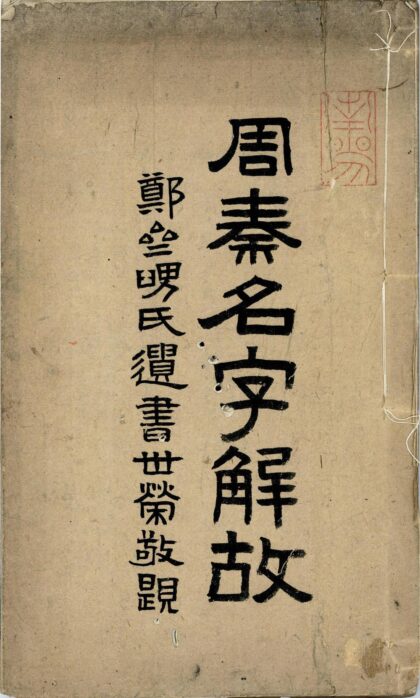 周秦名字解故
鄭亝舅氏遺書世榮敬題